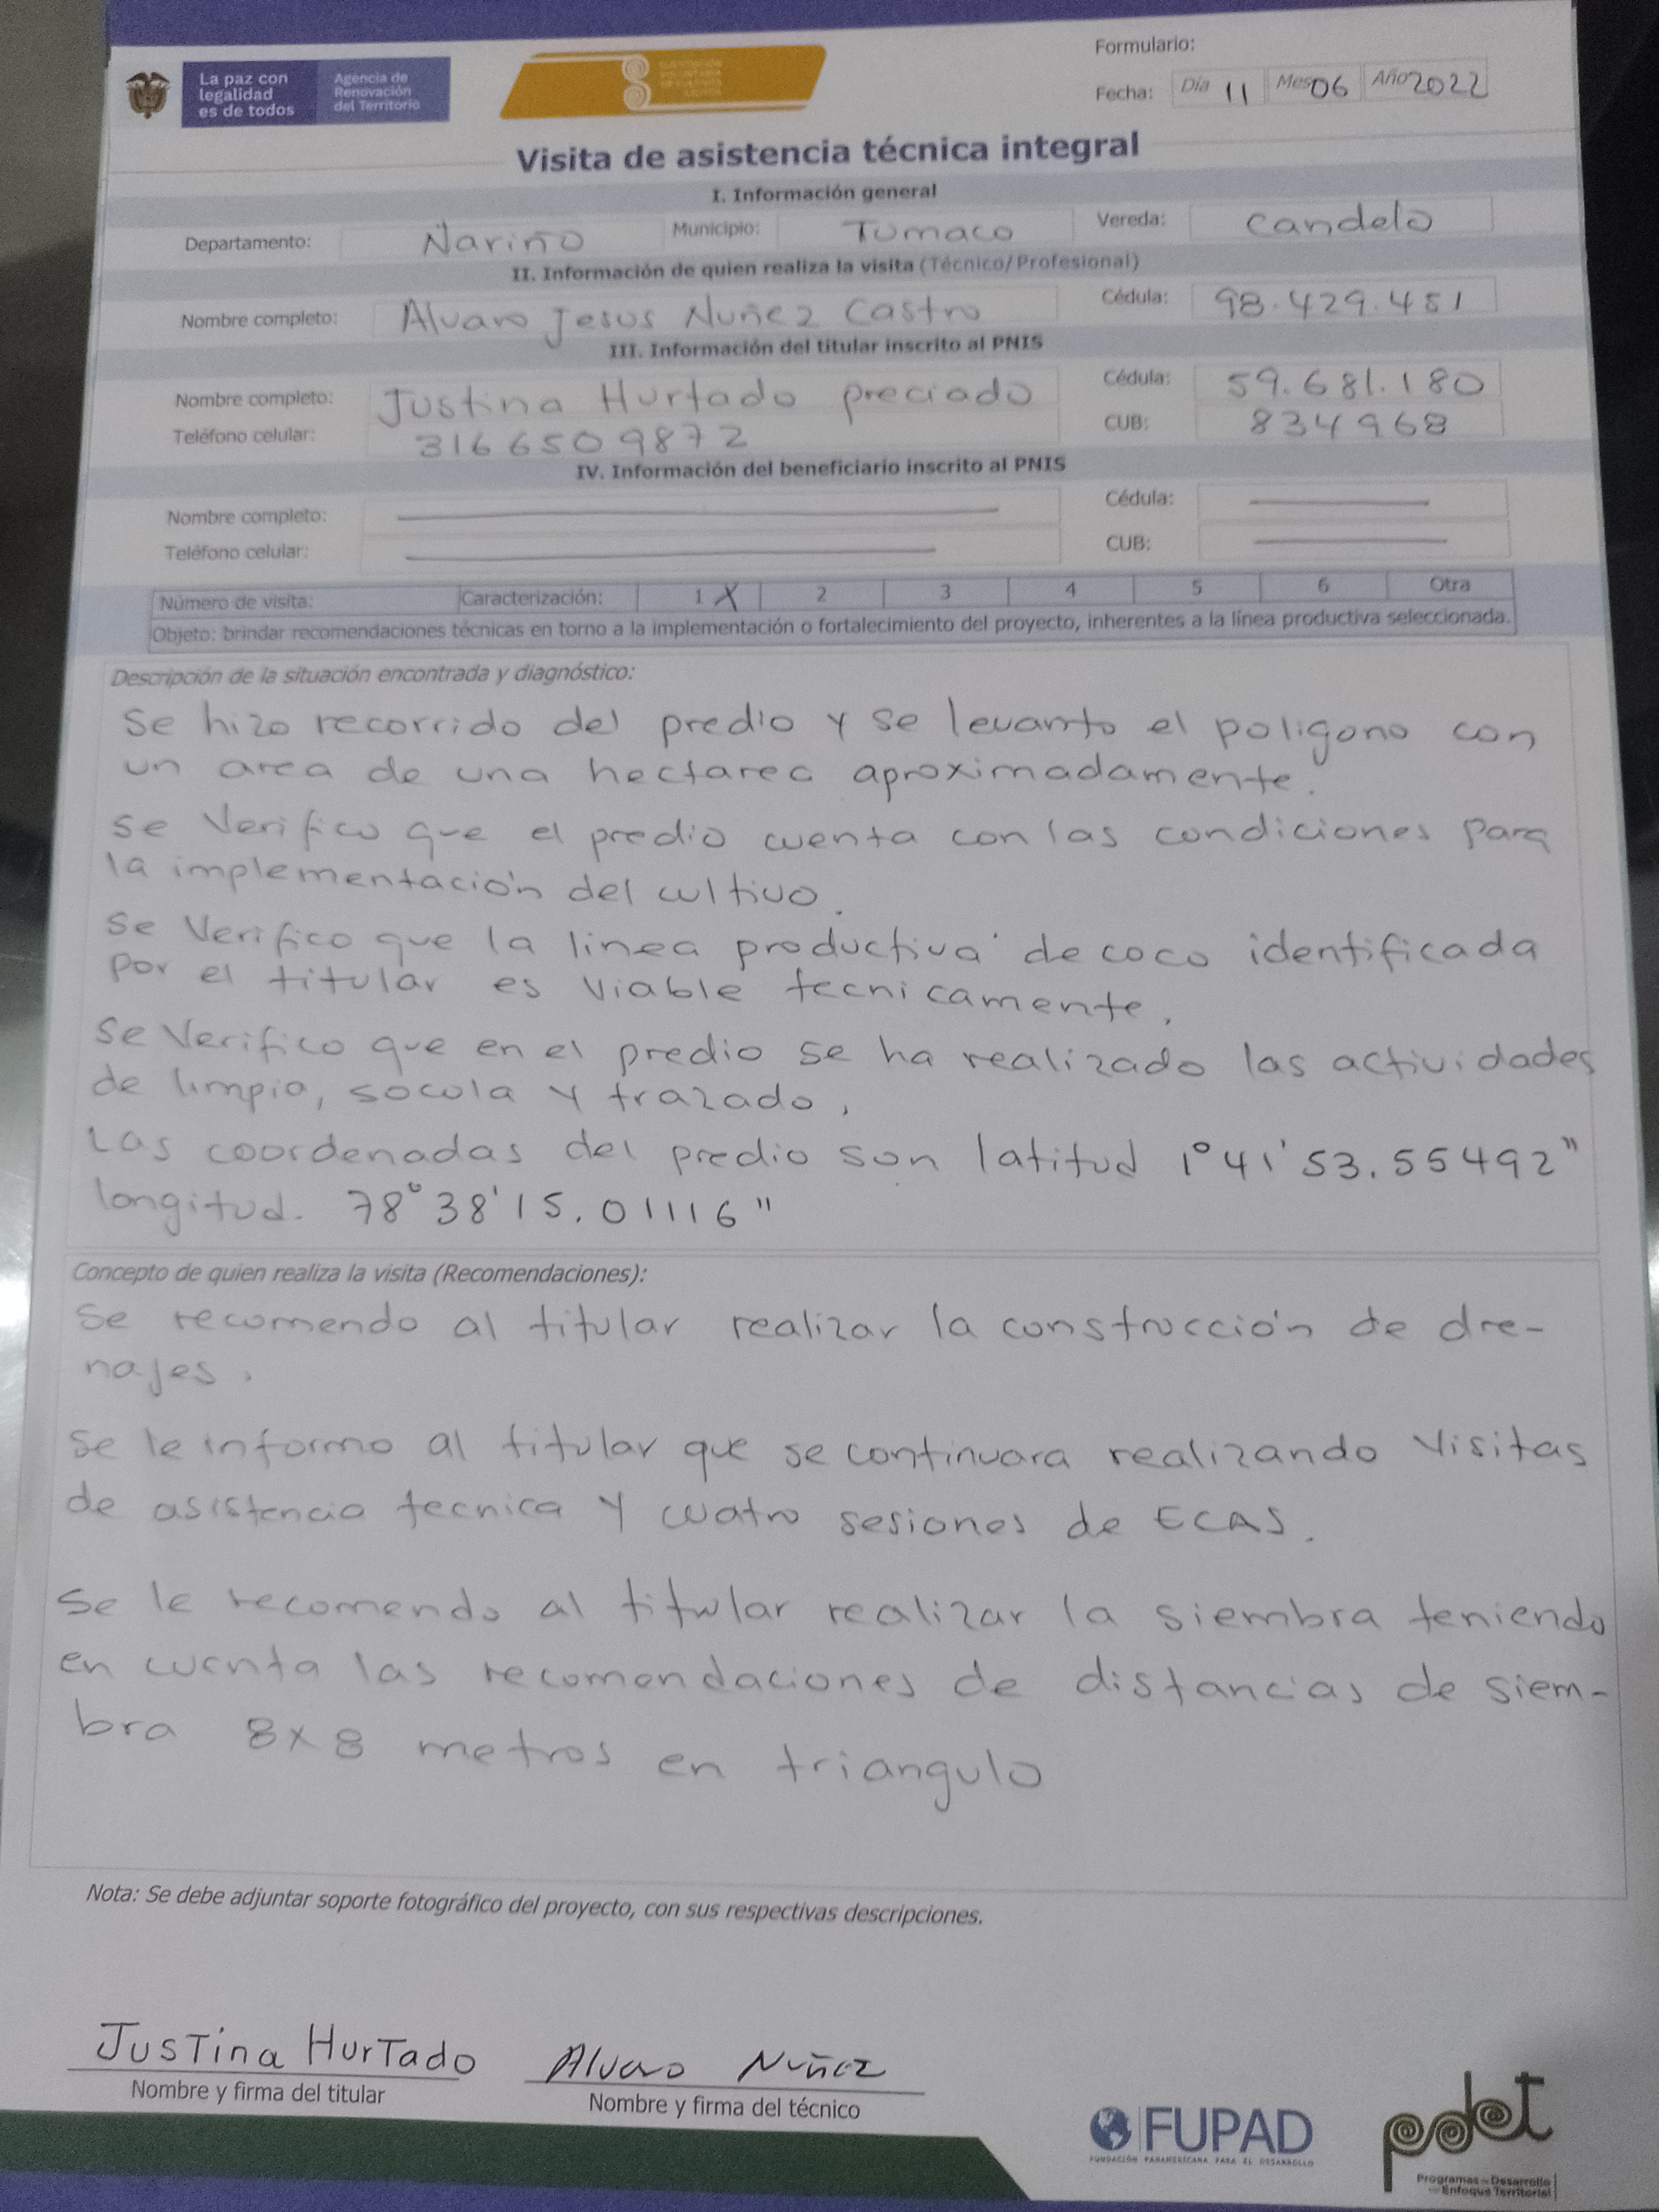 Formulario:
La paz con legalidad es de todos
Agencia de Renovación del Territorio
Fecha: Día 11 Mes 06 Año 2022
Visita de asistencia técnica integral
I. Información general
Departamento: Nariño Municipio: Tumaco Vereda: Candelo
II. Información de quien realiza la visita (Técnico/Profesional)
Nombre completo: Alvaro Jesus Nuñez Castro Cédula: 98.429.451
III. Información del titular inscrito al PNIS
Nombre completo: Justina Hurtado preciado Cédula: 59.681.180
Teléfono celular: 3166509872 CUB: 834968
IV. Información del beneficiario inscrito al PNIS
Nombre completo: Cédula:
Teléfono celular: CUB:
Número de visita: Caracterización: 1 X 2 3 4 5 6 Otra
Objeto: brindar recomendaciones técnicas en torno a la implementación o fortalecimiento del proyecto, inherentes a la línea productiva seleccionada.
Descripción de la situación encontrada y diagnóstico:
Se hizo recorrido del predio y se levanto el poligono con
un area de una hectarea aproximadamente.
Se Verifico que el predio cuenta con las condiciones para
la implementación del cultivo.
Se Verifico que la linea productiva de coco identificada
por el titular es viable tecnicamente.
Se Verifico que en el predio se ha realizado las actividades
de limpia, socola y trazado,
Las coordenadas del predio son latitud 1°41'53.55492"
longitud. 78°38'15.01116"
Concepto de quien realiza la visita (Recomendaciones):
Se recomendo al titular realizar la construcción de dre-
najes.
Se le informo al titular que se continuara realizando Visitas
de asistencia tecnica y cuatro sesiones de ECAS.
Se le recomendo al titular realizar la siembra teniendo
en cuenta las recomendaciones de distancias de siem-
bra 8x8 metros en triangulo
Nota: Se debe adjuntar soporte fotográfico del proyecto, con sus respectivas descripciones.
Justina Hurtado Alvaro Nuñez
Nombre y firma del titular Nombre y firma del técnico
FUPAD
FUNDACIÓN PANAMERICANA PARA EL DESARROLLO
pdet
Programas de Desarrollo
con Enfoque Territorial